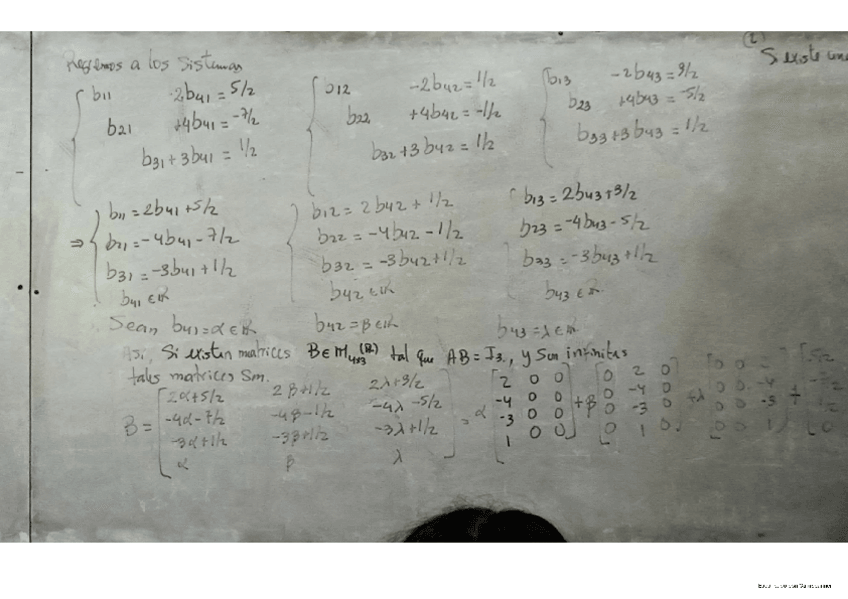 Regresemos a los sistemas
(2)
Si existe
b11 -2b41 = 5/2
b21 +4b41 = -7/2
b31 + 3b41 = 1/2
b12 -2b42 = 1/2
b22 +4b42 = -1/2
b32 + 3b42 = 1/2
b13 -2b43 = 3/2
b23 +4b43 = -5/2
b33 + 3b43 = 1/2
⇒ b11 = 2b41 + 5/2
b21 = -4b41 - 7/2
b31 = -3b41 + 1/2
b41 ∈ ℝ
b12 = 2b42 + 1/2
b22 = -4b42 - 1/2
b32 = -3b42 + 1/2
b42 ∈ ℝ
b13 = 2b43 + 3/2
b23 = -4b43 - 5/2
b33 = -3b43 + 1/2
b43 ∈ ℝ
Sean b41 = α ∈ ℝ b42 = β ∈ ℝ b43 = λ ∈ ℝ
Así, Si existen matrices B ∈ M4x3(ℝ) tal que AB = I3, y son infinitas
tales matrices Son:
2α+5/2 2β+1/2 2λ+3/2
-4α-7/2 -4β-1/2 -4λ-5/2
B = -3α+1/2 -3β+1/2 -3λ+1/2
α β λ
= α
2 0 0
-4 0 0
-3 0 0
1 0 0
+ β
0 2 0
0 -4 0
0 -3 0
0 1 0
+ λ
0 0
0 0 -4
0 0 -3
0 0 1
+
5/2
-7/2
1/2
0